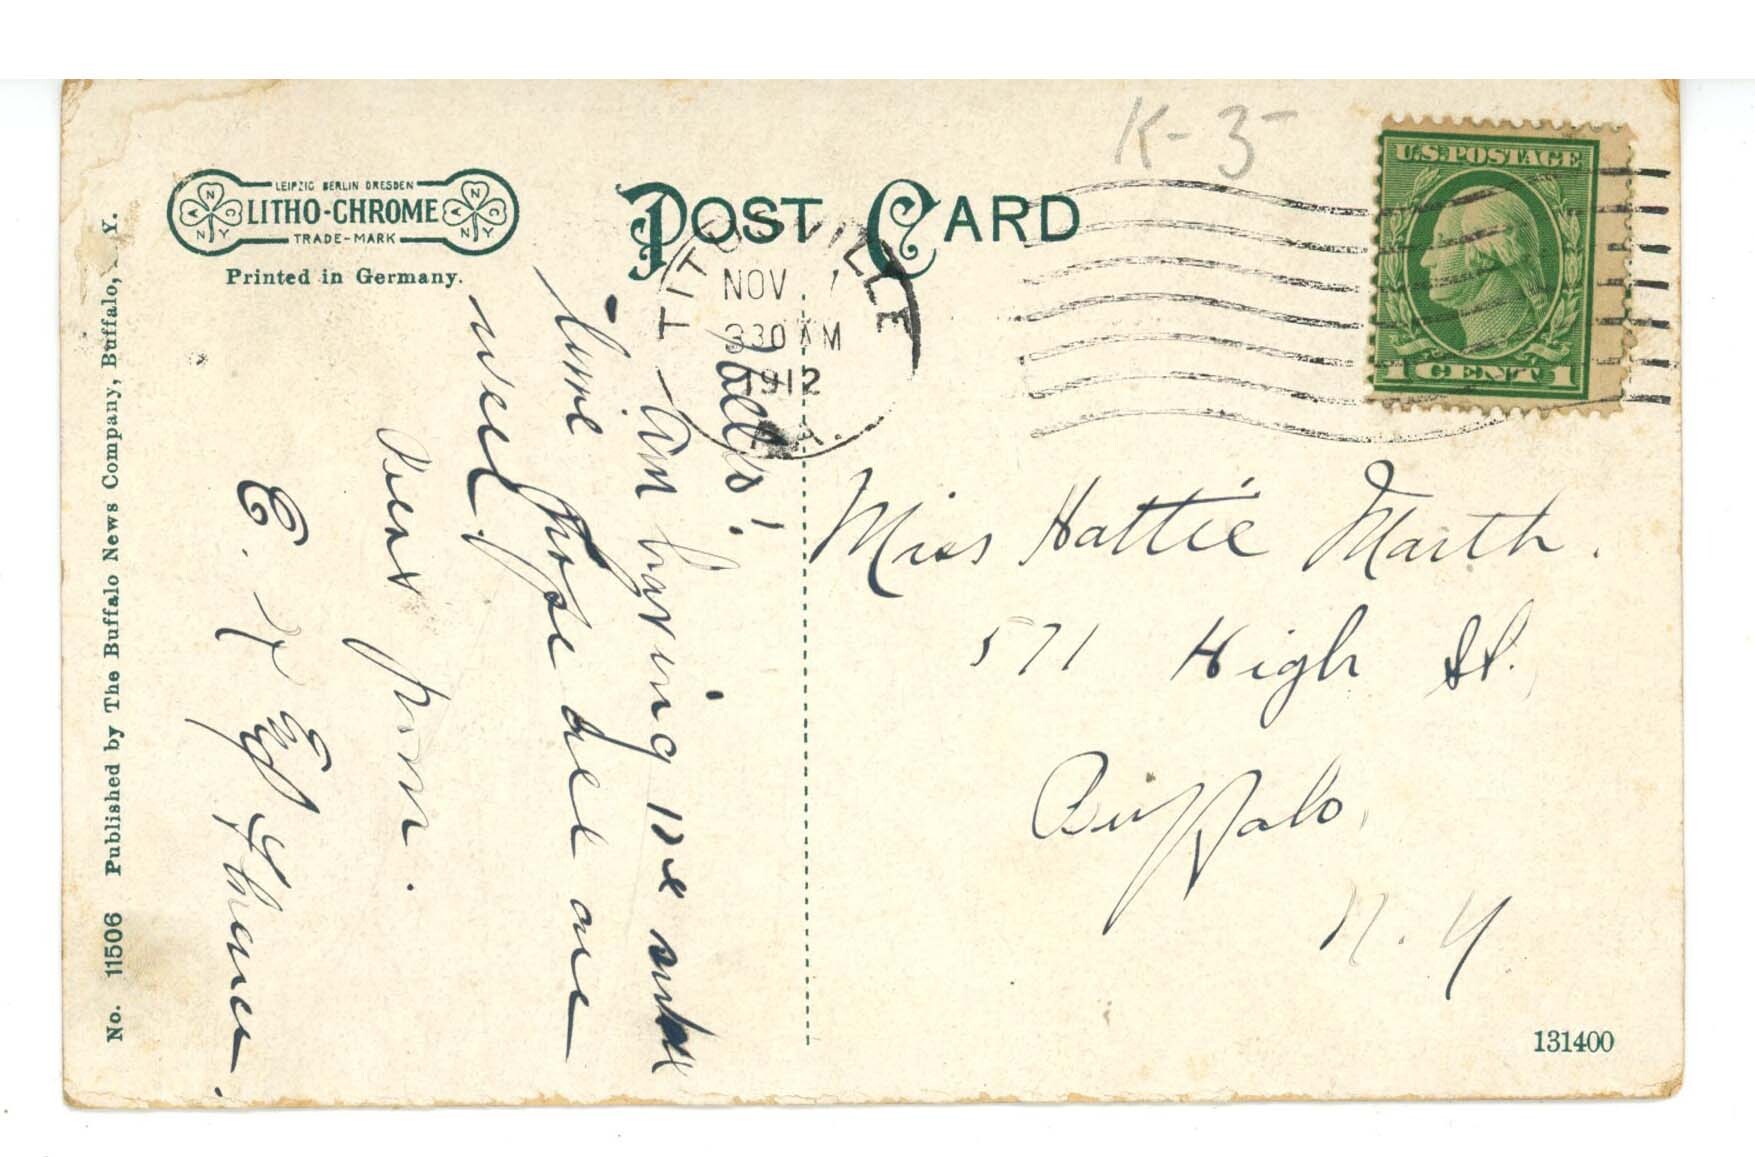 K-3-
U.S. POSTAGE
1 CENT 1
LEIPZIG BERLIN DRESDEN
LITHO-CHROME
TRADE-MARK
Printed in Germany.
POST CARD
TITUSVILLE
NOV
330 AM
1912
PA.
No. 11506 Published by The Buffalo News Company, Buffalo, Y.
Hello!
Am having
time hope all are
well.
E.
Miss Hattie Marth.
571 High St.
Buffalo,
N. Y
131400